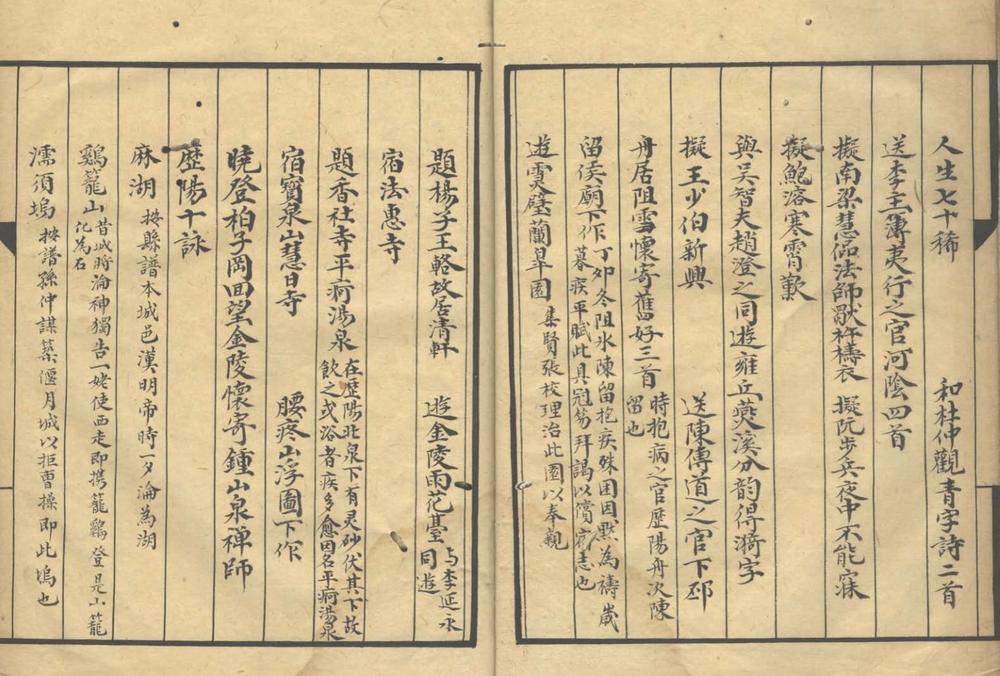 人生七十稀　和杜仲觀青字詩二首
送李主簿夷行之官河陰四首
擬南梁慧偘法師獻杵擣衣　擬阮步兵夜中不能寐
擬鮑溶寒霄歎
與吴智夫趙澄之同遊雍丘㷼溪分韵得漪字
擬王少伯新興　送陳傳道之官下邳
舟居阻雪懷寄舊好三首　時抱病之官歷陽舟次陳
留也
留侯廟下作　丁夘冬阻氷陳留抱疾殊困因黙為禱歲
暮疾平賦此具冠笏拜謁以償宿志也
遊雲壁蘭臯園　集賢張校理治此園以奉親
題楊子王輅故居清軒　遊金陵雨花臺　与李延永
同遊
宿法惠寺
題香社寺平痾湯泉　在歷陽北泉下有灵砂伏其下故
飲之或浴者疾多愈因名平痾湯泉
宿寳泉山慧日寺　腰疼山浮圖下作
曉登柏子岡回望金陵懷寄鍾山泉禪師
歴陽十詠
麻湖　按縣譜本城邑漢明帝時一夕淪為湖
鷄籠山　昔城將淪神獨告一姥使西走即携籠鷄登是山籠
化為石
濡須塢　按譜孫仲謀築偃月城以拒曹操即此塢也